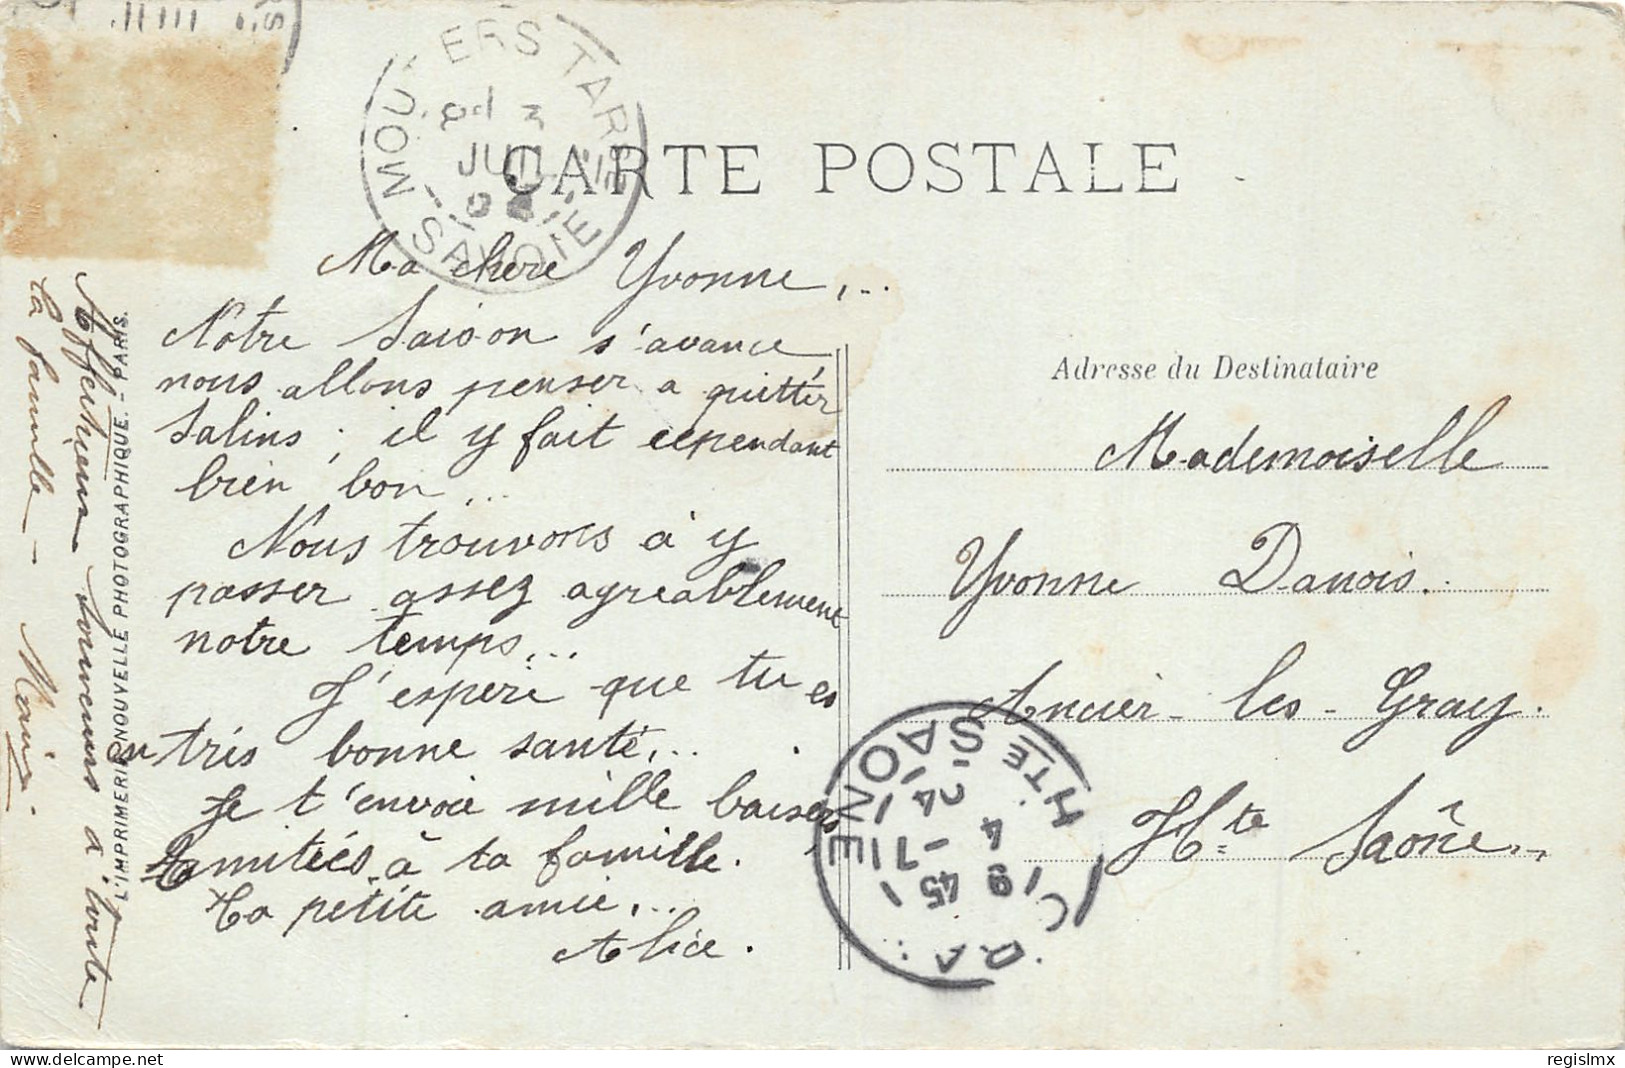 MOUTIERS TARSE
JUIL
SAVOIE
CARTE POSTALE
Ma chere Yvonne,..
Notre saison s'avance
nous allons penser a quitter
Salins ; il y fait cependant
bien bon...
Nous trouvons à y
passer assez agreablement
notre temps...
J'espere que tu es
en très bonne santé...
Je t'envoie mille baisers
amitiés à ta famille.
Ta petite amie,..
Alice.
Affectueux souvenirs à toute
la famille — Marie.
L'IMPRIMERIE NOUVELLE PHOTOGRAPHIQUE. - PARIS.
Adresse du Destinataire
Mademoiselle
Yvonne Danois.
Ancier - les - Gray.
Hte Saône..
GRAY
HTE SAONE
9 45
4 - 7
regislmx
https://www.delcampe.net